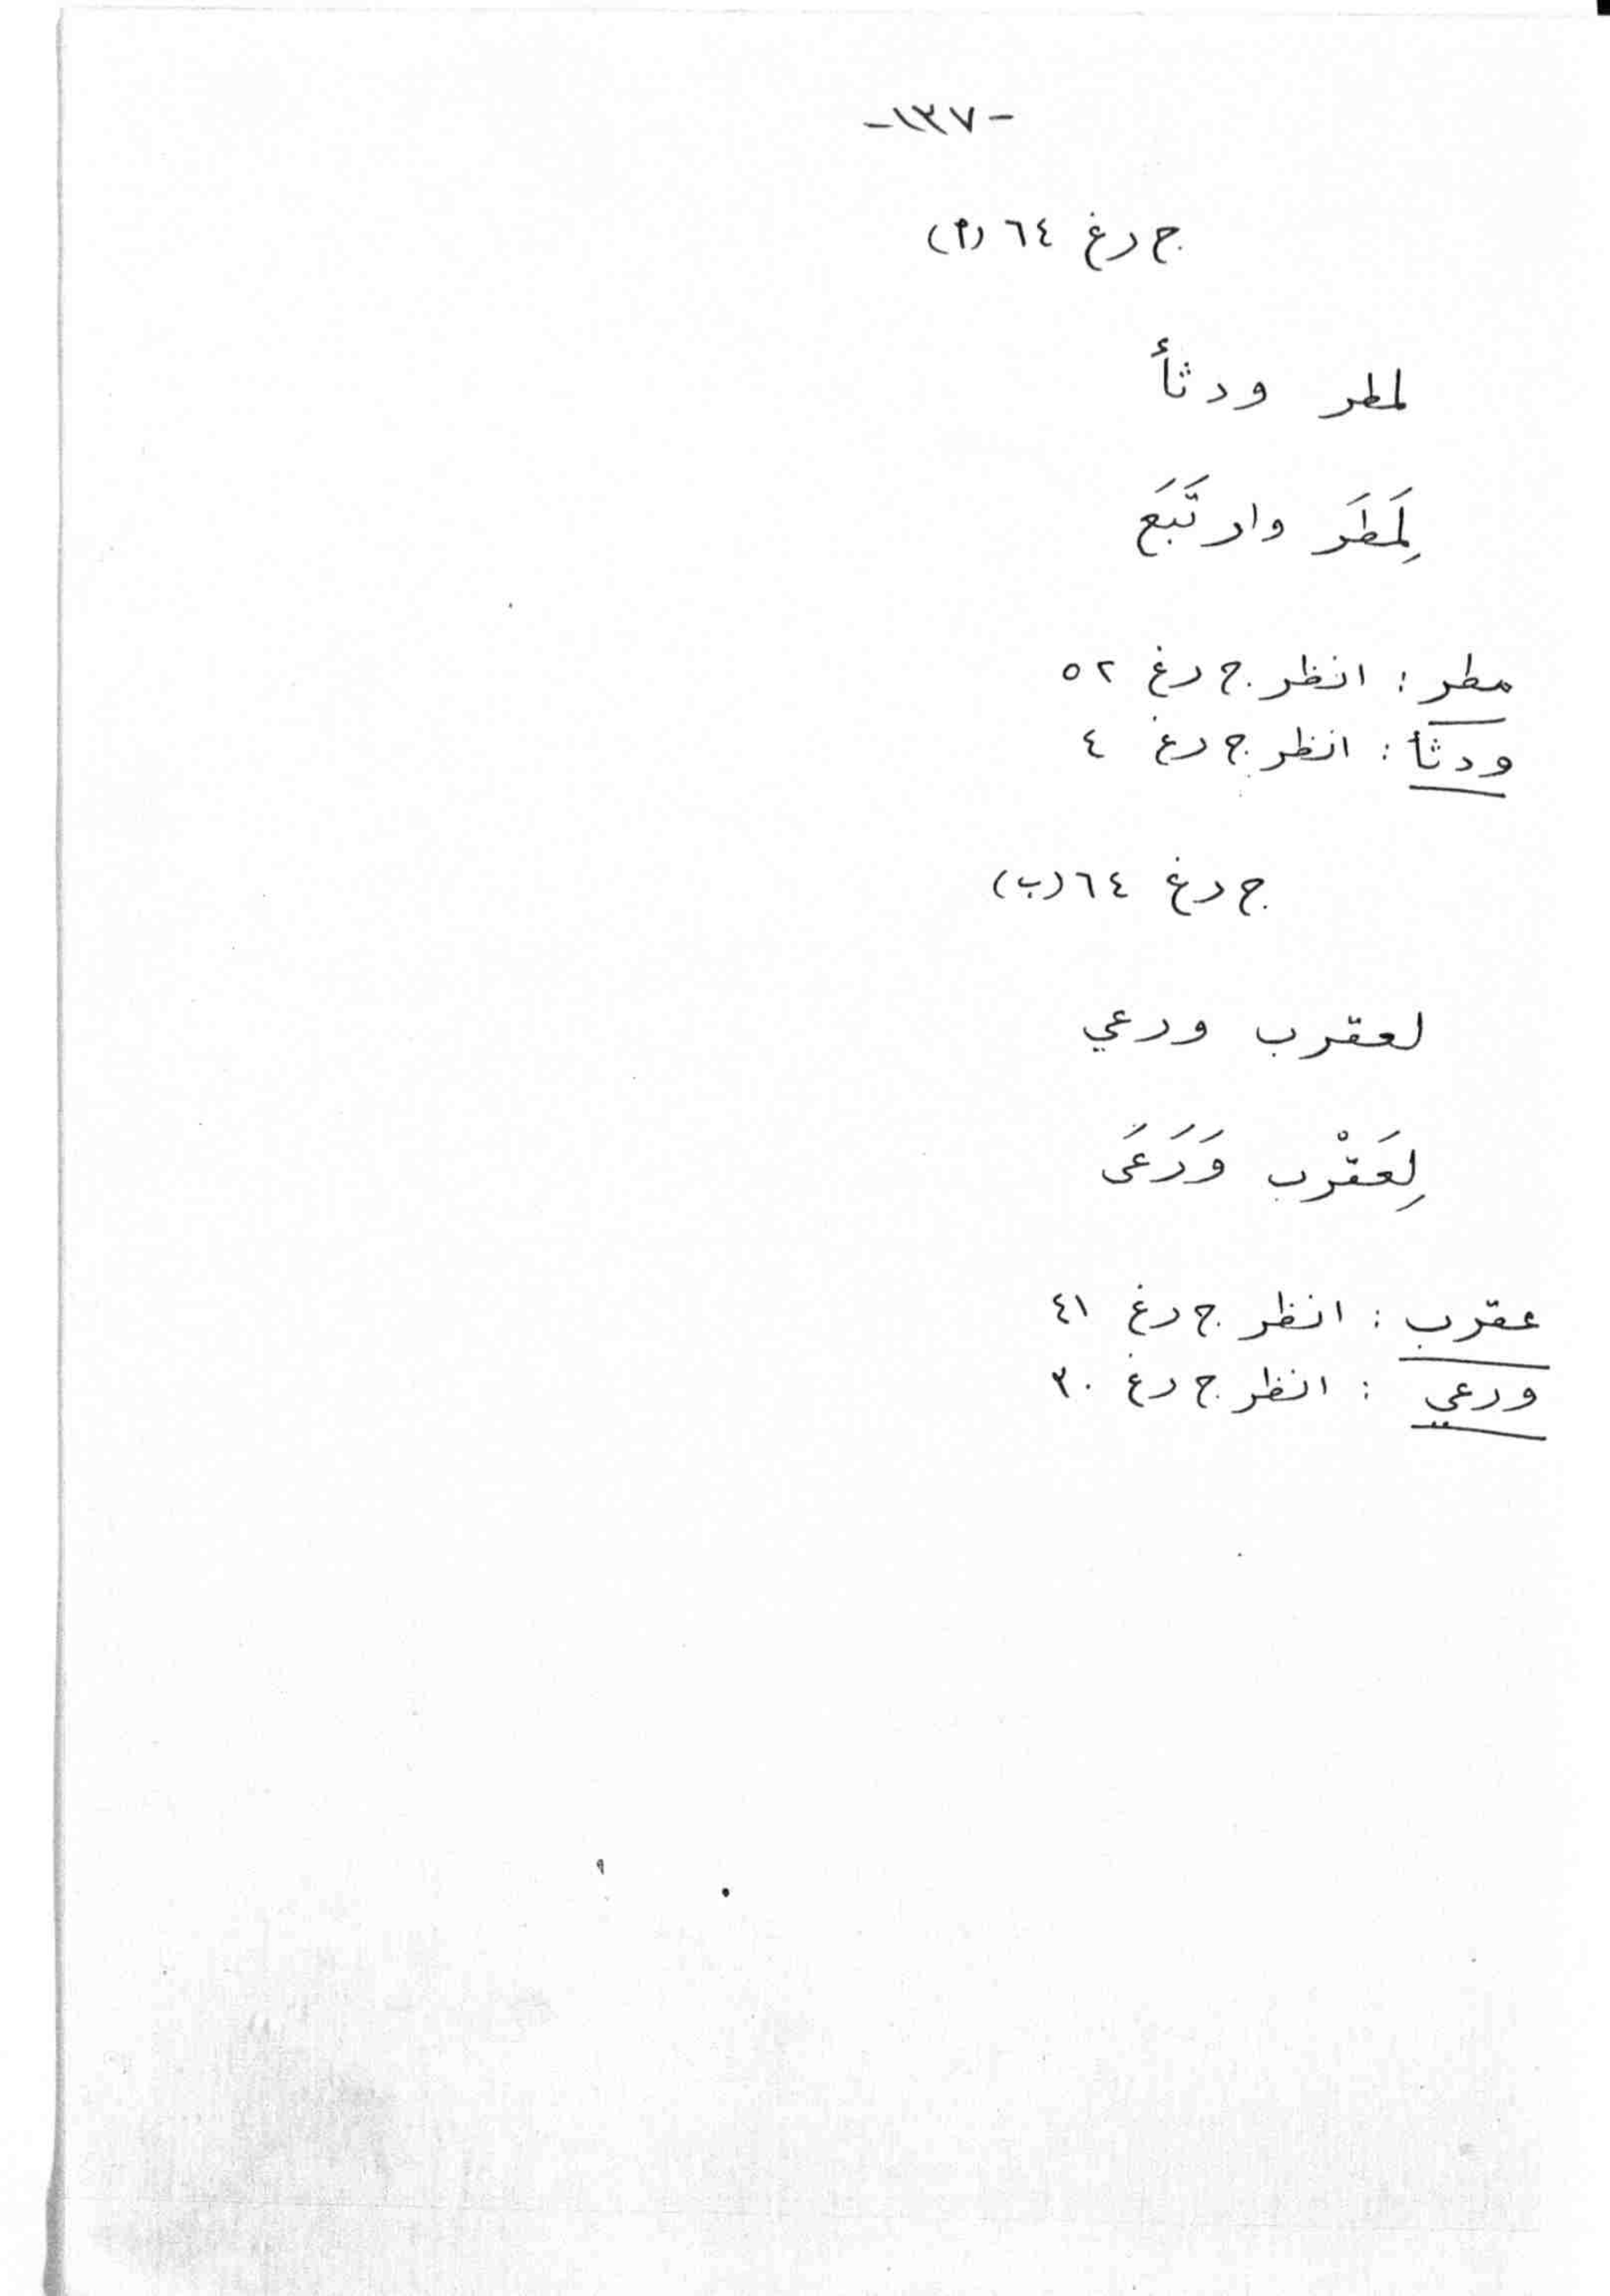 -١٣٧-
ج رغ ٦٤ (أ)
لمطر ودثأ
لِمَطَر وارتَبَعَ
مطر : انظر ج رغ ٥٢
ودثأ : انظر ج رغ ٤
ج رغ ٦٤ (ب)
لعقرب ورعي
لِعَقْرب وَرَعَى
عقرب : انظر ج رغ ٤١
ورعي : انظر ج رغ ٣٠